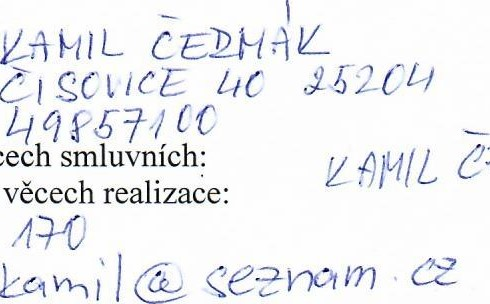 KAMIL ČEDMÁK
ČISOVICE 40 25204
49857100
cech smluvních:
KAMIL Č
věcech realizace:
170
kamil@seznam.cz